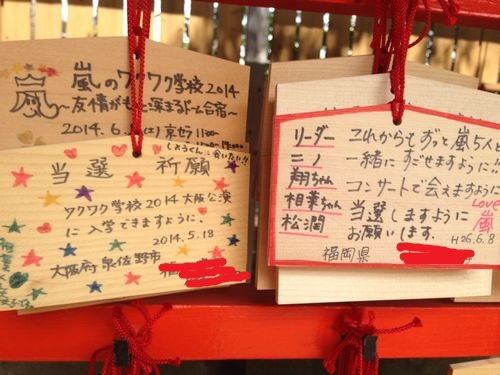 嵐のワクワク学校2014
～友情がもっと深まるドーム合宿～
2014.6.
(土)京セラ
しょうくんに会いたい!!
当選 祈願
ワクワク学校2014大阪公演
に入学できますように。
2014.5.18
大阪府泉佐野市
リーダー
ニノ
翔ちゃん
相葉ちゃん
松潤
これからもずっと嵐5人と
一緒にすごせますように!!
コンサートで会えますように
当選しますように
お願いします。
Love
嵐
H26.6.8
福岡県